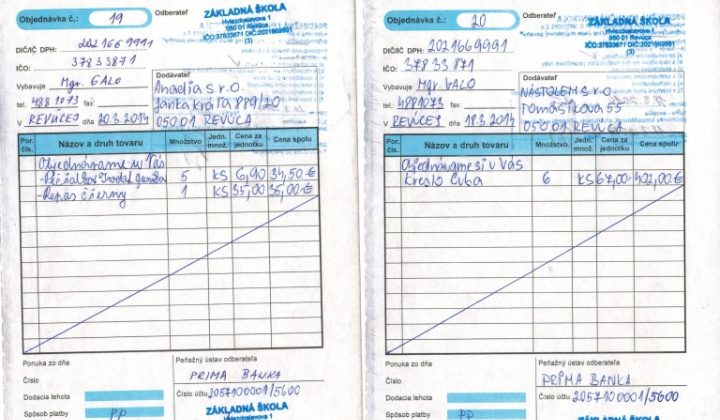 Objednávka č.: 19
Odberateľ
ZÁKLADNÁ ŠKOLA
Hviezdoslavova 1
050 01 Revúca
IČO:37833871 DIČ:2021669991
(3)
DIČ/IČ DPH: 2021669991
IČO: 37833871
Vybavuje Mgr. GALO
tel.: 4881073 fax
V REVÚCEJ dňa 20.3.2014
Dodávateľ
Anaglia s r.o.
Janka Kráľa 889/20
050 01 REVÚCA
Por. čís. Názov a druh tovaru Množstvo Jedn. množ. Cena za jednotku Cena spolu
Objednávame u Vás
5 KS 6,90 34,50 €
- Repas čierny 1 KS 35,00 35,00 €
Ponuka zo dňa
Číslo
Dodacia lehota
Spôsob platby PP
Peňažný ústav odberateľa
PRIMA BANKA
Číslo účtu 2057100001/5600
ZÁKLADNÁ ŠKOLA
Hviezdoslavova 1
Objednávka č.: 20
Odberateľ
ZÁKLADNÁ ŠKOLA
Hviezdoslavova 1
050 01 Revúca
IČO:37833871 DIČ:2021669991
(3)
DIČ/IČ DPH: 2021669991
IČO: 37833871
Vybavuje Mgr. GALO
tel.: 4881073 fax
V REVÚCEJ dňa 18.3.2014
Dodávateľ
NÁSTOLEM s r.o.
Tomášikova 55
050 01 REVÚCA
Por. čís. Názov a druh tovaru Množstvo Jedn. množ. Cena za jednotku Cena spolu
Objednávame si u Vás
Kreslo Cuba 6 KS 67,00 402,00 €
Ponuka zo dňa
Číslo
Dodacia lehota
Spôsob platby PP
Peňažný ústav odberateľa
PRIMA BANKA
Číslo účtu 2057100001/5600
ZÁKLADNÁ ŠKOLA
Hviezdoslavova 1